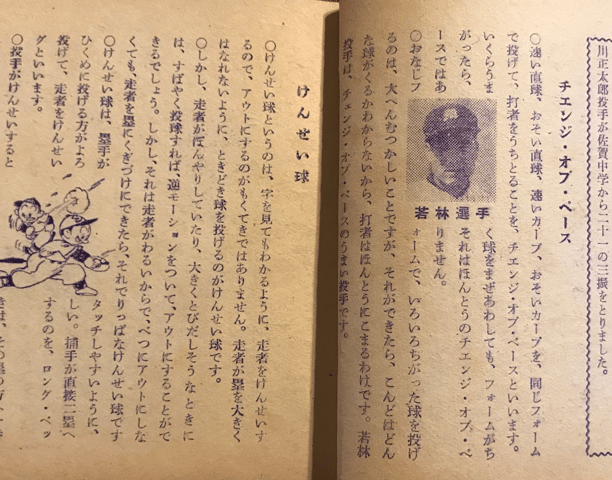 川正太郎投手が佐賀中学から二十一の三振をとりました。
チエンジ・オブ・ペース
〇速い直球、おそい直球、速いカーブ、おそいカーブを、同じフォーム
で投げて、打者をうちとることを、チエンジ・オブ・ペースといいます。
いくらうま
く球をまぜあわしても、フォームがち
がったら、
それはほんとうのチエンジ・オブ・ペ
ースではあ
りません。
〇おなじフ
ォームで、いろいろちがった球を投げ
若林選手
るのは、大へんむつかしいことですが、それができたら、こんどはどん
な球がくるかわからないから、打者はほんとうにこまるわけです。若林
投手は、チエンジ・オブ・ペースのうまい投手です。
けんせい球
〇けんせい球というのは、字を見てもわかるように、走者をけんせいす
るので、アウトにするのがもくてきではありません。走者が塁を大きく
はなれないように、ときどき球を投げるのがけんせい球です。
〇しかし、走者がぼんやりしていたり、大きくとびだしそうなときに
は、すばやく投球すれば、逆モーションをついて、アウトにすることがで
きるでしょう。しかし、それは走者がわるいからで、べつにアウトにしな
くても、走者を塁にくぎづけにできたら、それでりっぱなけんせい球です
〇けんせい球は、塁手が
タッチしやすいように、
ひくめに投げる方がよろ
しい。捕手が直接二塁へ
投げて、走者をけんせい
するのを、ロング・ペッ
グといいます。
〇投手がけんせいすると
きは、その塁の方へ